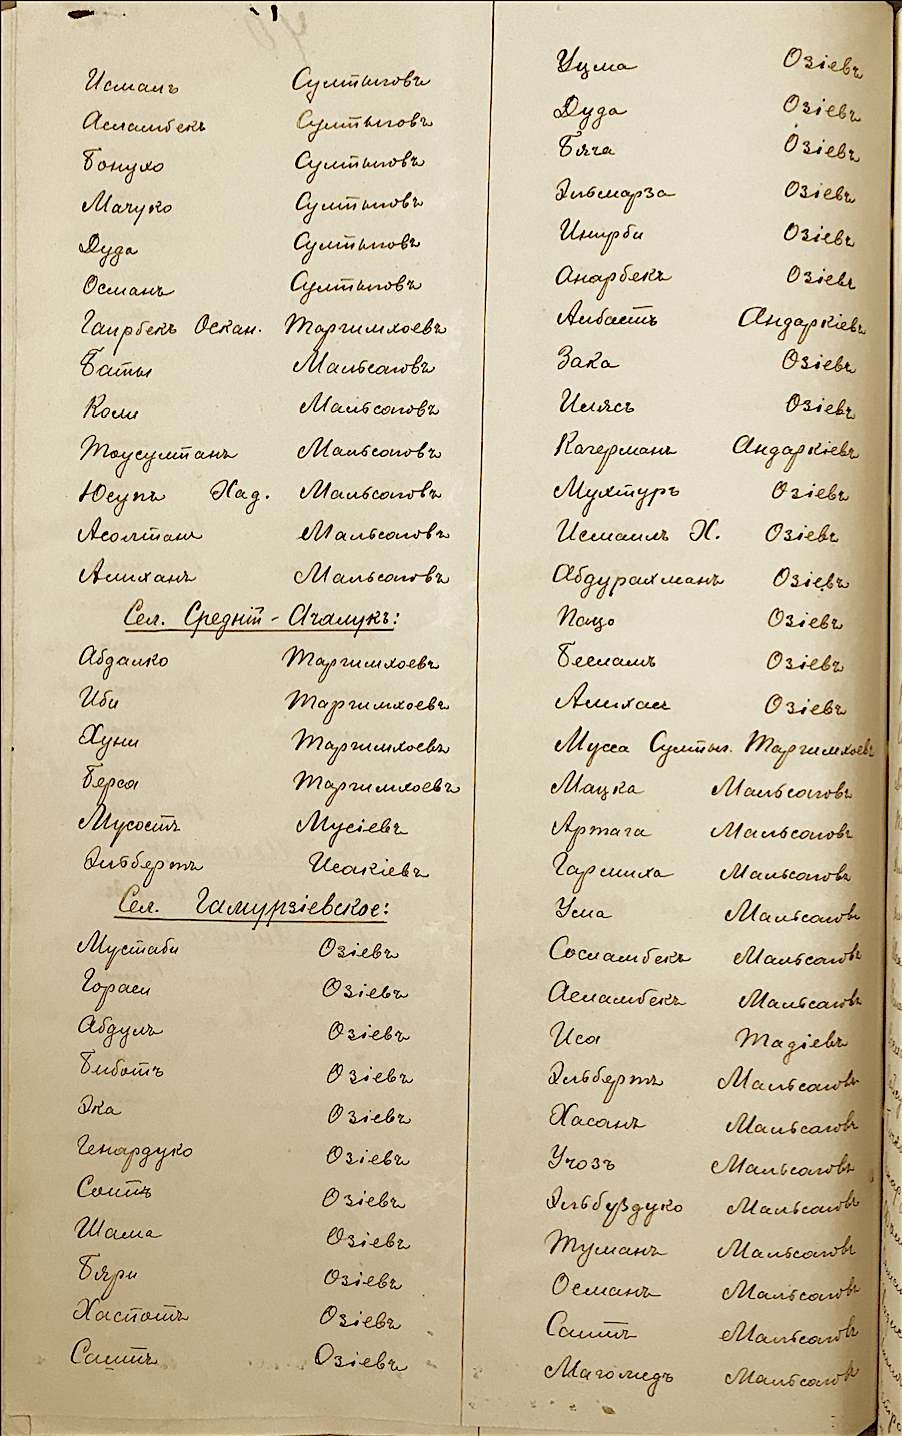 Исмаилъ Султыговъ
Асламбекъ Султыговъ
Бонухо Султыговъ
Мачуко Султыговъ
Дуда Султыговъ
Османъ Султыговъ
Гаирбекъ Оскан. Таргимхоевъ
Баты Мальсаговъ
Коли Мальсаговъ
Тоусултанъ Мальсаговъ
Юсупъ Хад. Мальсаговъ
Асолтанъ Мальсаговъ
Алиханъ Мальсаговъ
Сел. Средній-Ачалукъ:
Абдалко Таргимхоевъ
Иби Таргимхоевъ
Хуни Таргимхоевъ
Берса Таргимхоевъ
Мусостъ Мусіевъ
Эльбертъ Исакіевъ
Сел. Гамурзіевское:
Мустаби Озіевъ
Горали Озіевъ
Абдулъ Озіевъ
Биботъ Озіевъ
Эка Озіевъ
Генардуко Озіевъ
Саитъ Озіевъ
Шама Озіевъ
Бяри Озіевъ
Хаспотъ Озіевъ
Саитъ Озіевъ
Уцма Озіевъ
Дуда Озіевъ
Бяча Озіевъ
Эльмарза Озіевъ
Инырби Озіевъ
Анарбекъ Озіевъ
Албастъ Андаркіевъ
Зака Озіевъ
Илясъ Озіевъ
Кагерманъ Андаркіевъ
Мухтуръ Озіевъ
Исмаилъ Х. Озіевъ
Абдурахманъ Озіевъ
Пацо Озіевъ
Бесланъ Озіевъ
Алихан Озіевъ
Мусса Султыг. Таргимхоевъ
Мацка Мальсаговъ
Артага Мальсаговъ
Гарсмиха Мальсаговъ
Усма Мальсаговъ
Сосламбекъ Мальсаговъ
Асламбекъ Мальсаговъ
Иса Тадіевъ
Эльбертъ Мальсаговъ
Хасанъ Мальсаговъ
Учозъ Мальсаговъ
Эльбуздуко Мальсаговъ
Туманъ Мальсаговъ
Османъ Мальсаговъ
Саитъ Мальсаговъ
Магомедъ Мальсаговъ